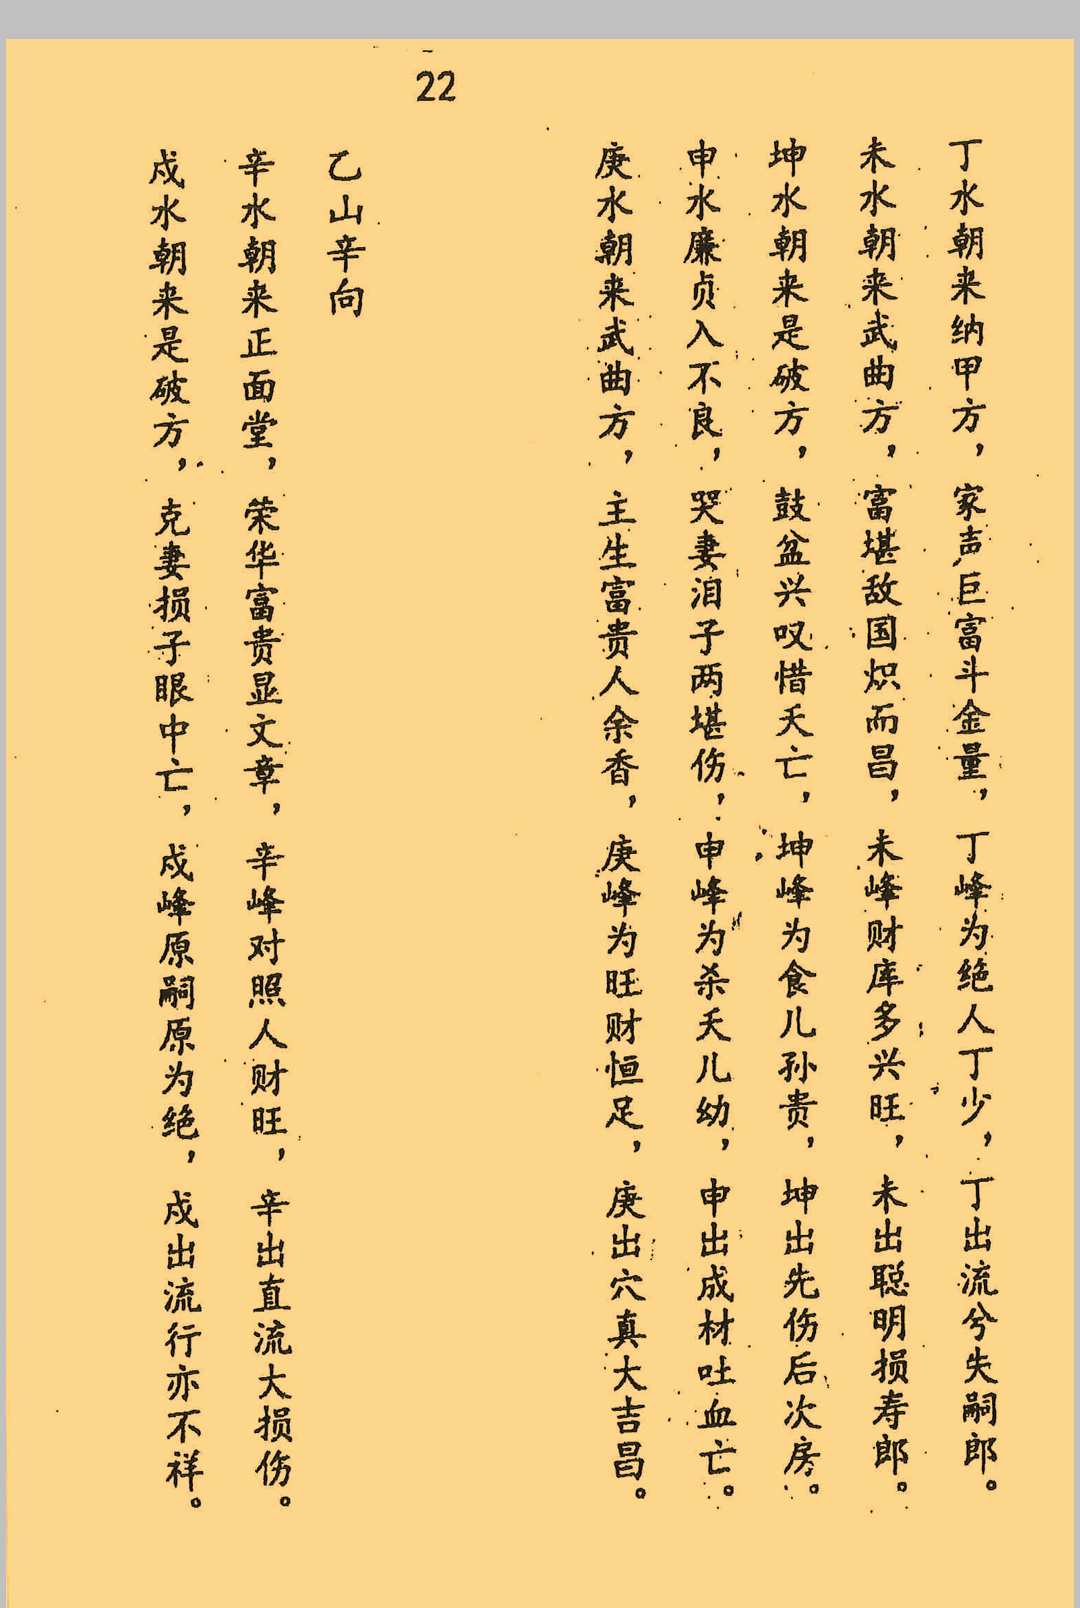 22
丁水朝来纳甲方，家声巨富斗金量，丁峰为绝人丁少，丁出流兮失嗣郎。
未水朝来武曲方，富堪敌国炽而昌，未峰财库多兴旺，未出聪明损寿郎。
坤水朝来是破方，鼓盆兴叹惜夭亡，坤峰为食儿孙贵，坤出先伤后次房。
申水廉贞入不良，哭妻泪子两堪伤，申峰为杀夭儿幼，申出成材吐血亡。
庚水朝来武曲方，主生富贵人余香，庚峰为旺财恒足，庚出穴真大吉昌。
乙山辛向
辛水朝来正面堂，荣华富贵显文章，辛峰对照人财旺，辛出直流大损伤。
戍水朝来是破方，克妻损子眼中亡，戍峰原嗣原为绝，戍出流行亦不祥。